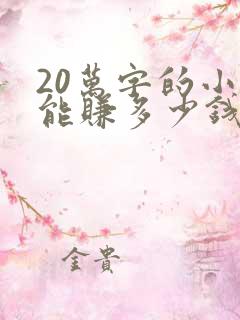 20萬字的小
能賺多少錢
金貴